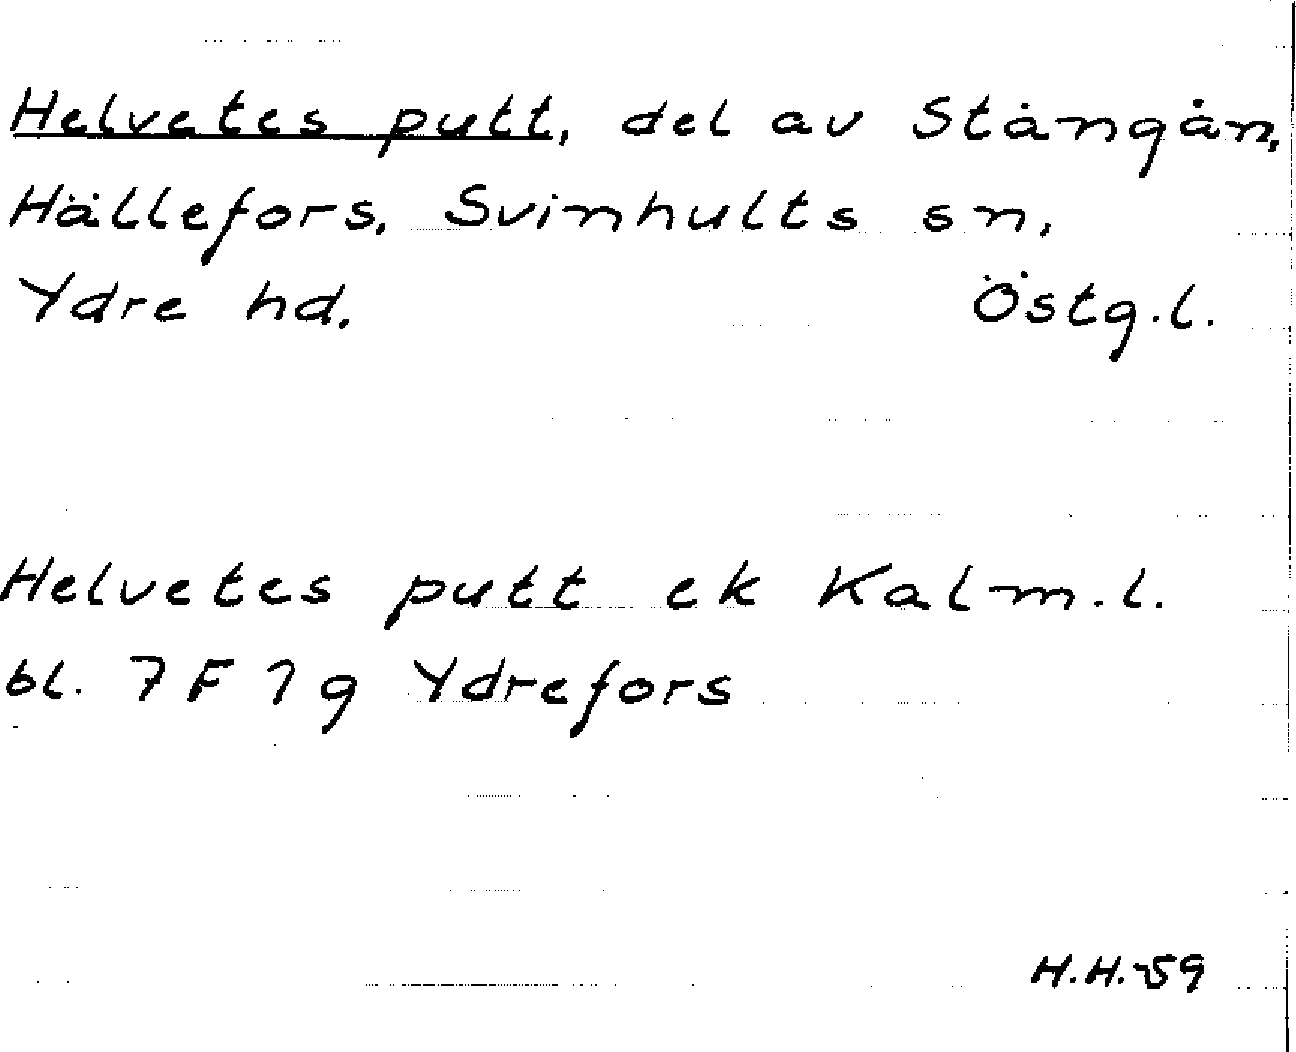 Helvetes putt, del av Stångån,
Hällefors, Svinhults sn,
Ydre hd. Östg.l.
Helvetes putt ek Kalm.l.
bl. 7 F 1 g Ydrefors
H.H.-59